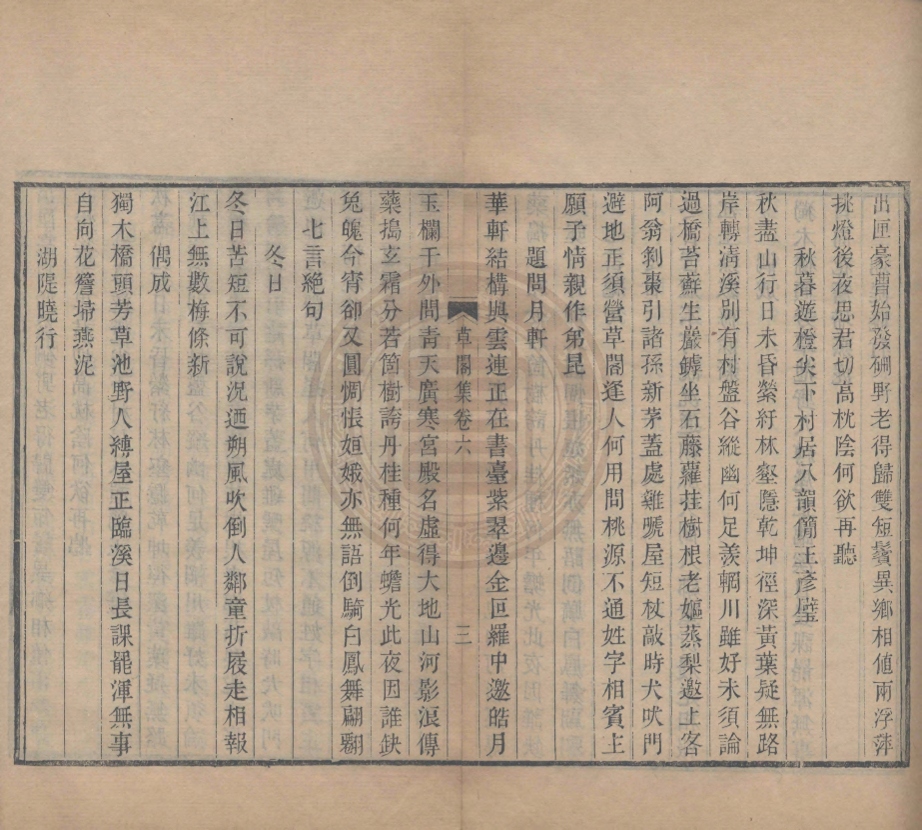 出匣豪曹始發硎野老得歸雙短鬢異鄉相値兩浮萍
挑燈後夜思君切高枕陰何欲再聽
秋暮遊橙尖下村居八韻簡王彥璧
秋盡山行日未昏縈紆林壑隱乾坤徑深黃葉疑無路
岸轉淸溪別有村盤谷縱幽何足羨輞川雖好未須論
過橋苔蘚生巖罅坐石藤蘿挂樹根老嫗蒸梨邀上客
阿翁剝棗引諸孫新茅蓋處雞號屋短杖敲時犬吠門
避地正須營草閣逢人何用問桃源不通姓字相賓上
願子情親作弟昆
題問月軒
華軒結構與雲連正在書臺紫翠邊金叵羅中邀皓月
草閣集卷六
三
玉欄干外問靑天廣寒宮殿名虛得大地山河影浪傳
藥搗玄霜分若箇樹誇丹桂種何年蟾光此夜因誰缺
兔魄今宵卻又圓惆悵姮娥亦無語倒騎白鳳舞翩翾
七言絕句
冬日
冬日苦短不可說況迺朔風吹倒人鄰童折屐走相報
江上無數梅條新
偶成
獨木橋頭芳草池野人縛屋正臨溪日長課罷渾無事
自向花簷埽燕泥
湖隄曉行